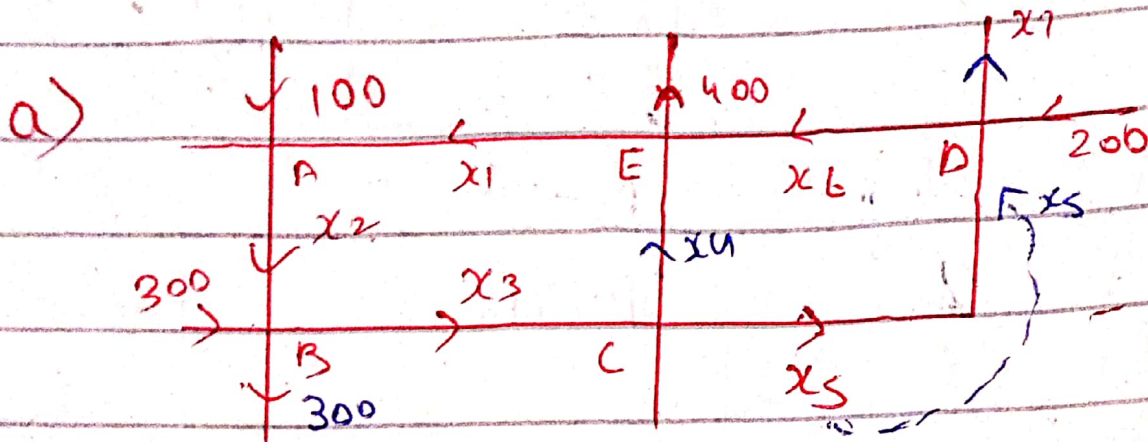 x7
a) 100 400
200
A x1 E x6 D
x2 x5
x4
300 x3
B C x5
300